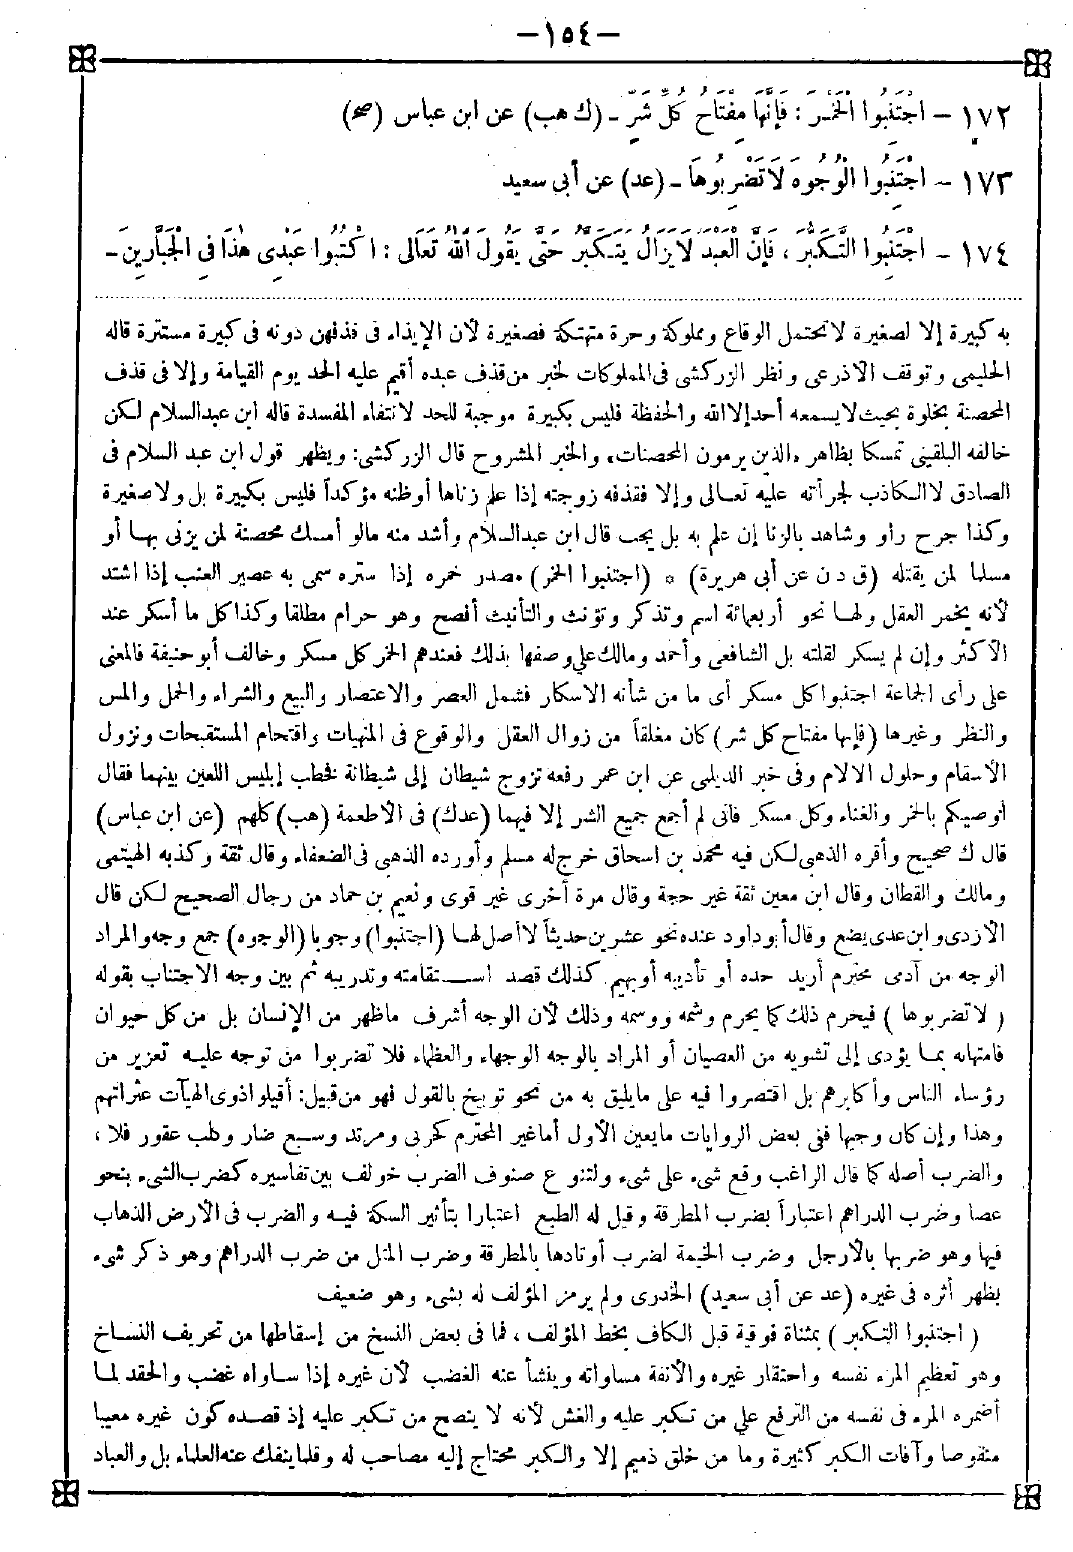 — ١٥٤ —
١٧٢ — اجْتَنِبُوا الْخَمْرَ : فَإِنَّهَا مِفْتَاحُ كُلِّ شَرٍّ - (ك هب) عن ابن عباس (صح)
١٧٣ — اجْتَنِبُوا الْوُجُوهَ لَا تَضْرِبُوهَا - (عد) عن أبى سعيد
١٧٤ - اجْتَنِبُوا التَّكَبُّرَ ، فَإِنَّ الْعَبْدَ لَا يَزَالُ يَتَكَبَّرُ حَتَّى يَقُولَ اللهُ تَعَالَى : اكْتُبُوا عَبْدِى هٰذَا فِى الْجَبَّارِينَ -
به كبيرة إلا لصغيرة لا تحتمل الوقاع ومملوكة وحرة متهتكة فصغيرة لأن الإيذاء فى قذفهن دونه فى كبيرة مستترة قاله
الحليمى وتوقف الأذرعى ونظر الزركشى فى المملوكات لخبر من قذف عبده أقيم عليه الحد يوم القيامة وإلا فى قذف
المحصنة بخلوة بحيث لا يسمعه أحد إلا الله والحفظة فليس بكبيرة موجبة للحد لانتفاء المفسدة قاله ابن عبدالسلام لكن
خالفه البلقينى تمسكا بظاهر «الذين يرمون المحصنات» والخبر المشروح قال الزركشى: ويظهر قول ابن عبد السلام فى
الصادق لا الكاذب لجرأته عليه تعالى وإلا فقذفه زوجته إذا علم زناها أو ظنه مؤكداً فليس بكبيرة بل ولا صغيرة
وكذا جرح راو وشاهد بالزنا إن علم به بل يجب قال ابن عبدالسلام وأشد منه مالو أمسك محصنة لمن يزنى بها أو
مسلما لمن يقتله (ق د ن عن أبى هريرة) * (اجتنبوا الخمر) مصدر خمره إذا ستره سمى به عصير العنب إذا اشتد
لأنه يخمر العقل ولها نحو أربعمائة اسم وتذكر وتؤنث والتأنيث أفصح وهو حرام مطلقا وكذا كل ما أسكر عند
الأكثر وإن لم يسكر لقلته بل الشافعى وأحمد ومالك على وصفها بذلك فعندهم الخمر كل مسكر وخالف أبو حنيفة فالمعنى
على رأى الجماعة اجتنبوا كل مسكر أى ما من شأنه الاسكار فشمل العصر والاعتصار والبيع والشراء والحمل والمس
والنظر وغيرها (فإنها مفتاح كل شر) كان مغلقاً من زوال العقل والوقوع فى المنهيات واقتحام المستقبحات ونزول
الأسقام وحلول الآلام وفى خبر الديلمى عن ابن عمر رفعه تزوج شيطان إلى شيطانة فخطب إبليس اللعين بينهما فقال
أوصيكم بالخمر والغناء وكل مسكر فانى لم أجمع جميع الشر إلا فيهما (عدك) فى الأطعمة (هب) كلهم (عن ابن عباس)
قال ك صحيح وأقره الذهبى لكن فيه محمد بن اسحاق خرج له مسلم وأورده الذهبى فى الضعفاء وقال ثقة وكذبه الهيتمى
ومالك والقطان وقال ابن معين ثقة غير حجة وقال مرة أخرى غير قوى ونعيم بن حماد من رجال الصحيح لكن قال
الأزدى وابن عدى يضع وقال أبو داود عنده نحو عشرين حديثاً لا أصل لها (اجتنبوا) وجوبا (الوجوه) جمع وجه والمراد
الوجه من آدمى محترم أريد حده أو تأديبه أو بهيم كذلك قصد استقامته وتدريبه ثم بين وجه الاجتناب بقوله
( لا تضربوها ) فيحرم ذلك كما يحرم وشمه ووسمه وذلك لأن الوجه أشرف ماظهر من الإنسان بل من كل حيوان
فامتهانه بما يؤدى إلى تشويه من العصيان أو المراد بالوجه الوجهاء والعظماء فلا تضربوا من توجه عليه تعزير من
رؤساء الناس وأكابرهم بل اقتصروا فيه على مايليق به من نحو توبيخ بالقول فهو من قبيل: أقيلوا ذوى الهيآت عثراتهم
وهذا وإن كان وجيها ففى بعض الروايات مايعين الأول أما غير المحترم كحربى ومرتد وسبع ضار وكلب عقور فلا ،
والضرب أصله كما قال الراغب وقع شىء على شىء ولتنوع صنوف الضرب خولف بين تفاسيره كضرب الشىء بنحو
عصا وضرب الدراهم اعتباراً بضرب المطرقة وقيل له الطبع اعتبارا بتأثير السكة فيه والضرب فى الأرض الذهاب
فيها وهو ضربها بالأرجل وضرب الخيمة لضرب أوتادها بالمطرقة وضرب المثل من ضرب الدراهم وهو ذكر شىء
يظهر أثره فى غيره (عد عن أبى سعيد) الخدرى ولم يرمز المؤلف له بشىء وهو ضعيف
( اجتنبوا التكبر ) بمثناة فوقية قبل الكاف بخط المؤلف ، فما فى بعض النسخ من إسقاطها من تحريف النساخ
وهو تعظيم المرء نفسه واحتقار غيره والأنفة مساواته وينشأ عنه الغضب لأن غيره إذا ساواه غضب والحقد لما
أضمره المرء فى نفسه من الترفع على من تكبر عليه والغش لأنه لا ينصح من تكبر عليه إذ قصده كون غيره معيبا
منقوصا وآفات الكبر كثيرة وما من خلق ذميم إلا والكبر محتاج إليه مصاحب له وقلما ينفك عنه العلماء بل والعباد